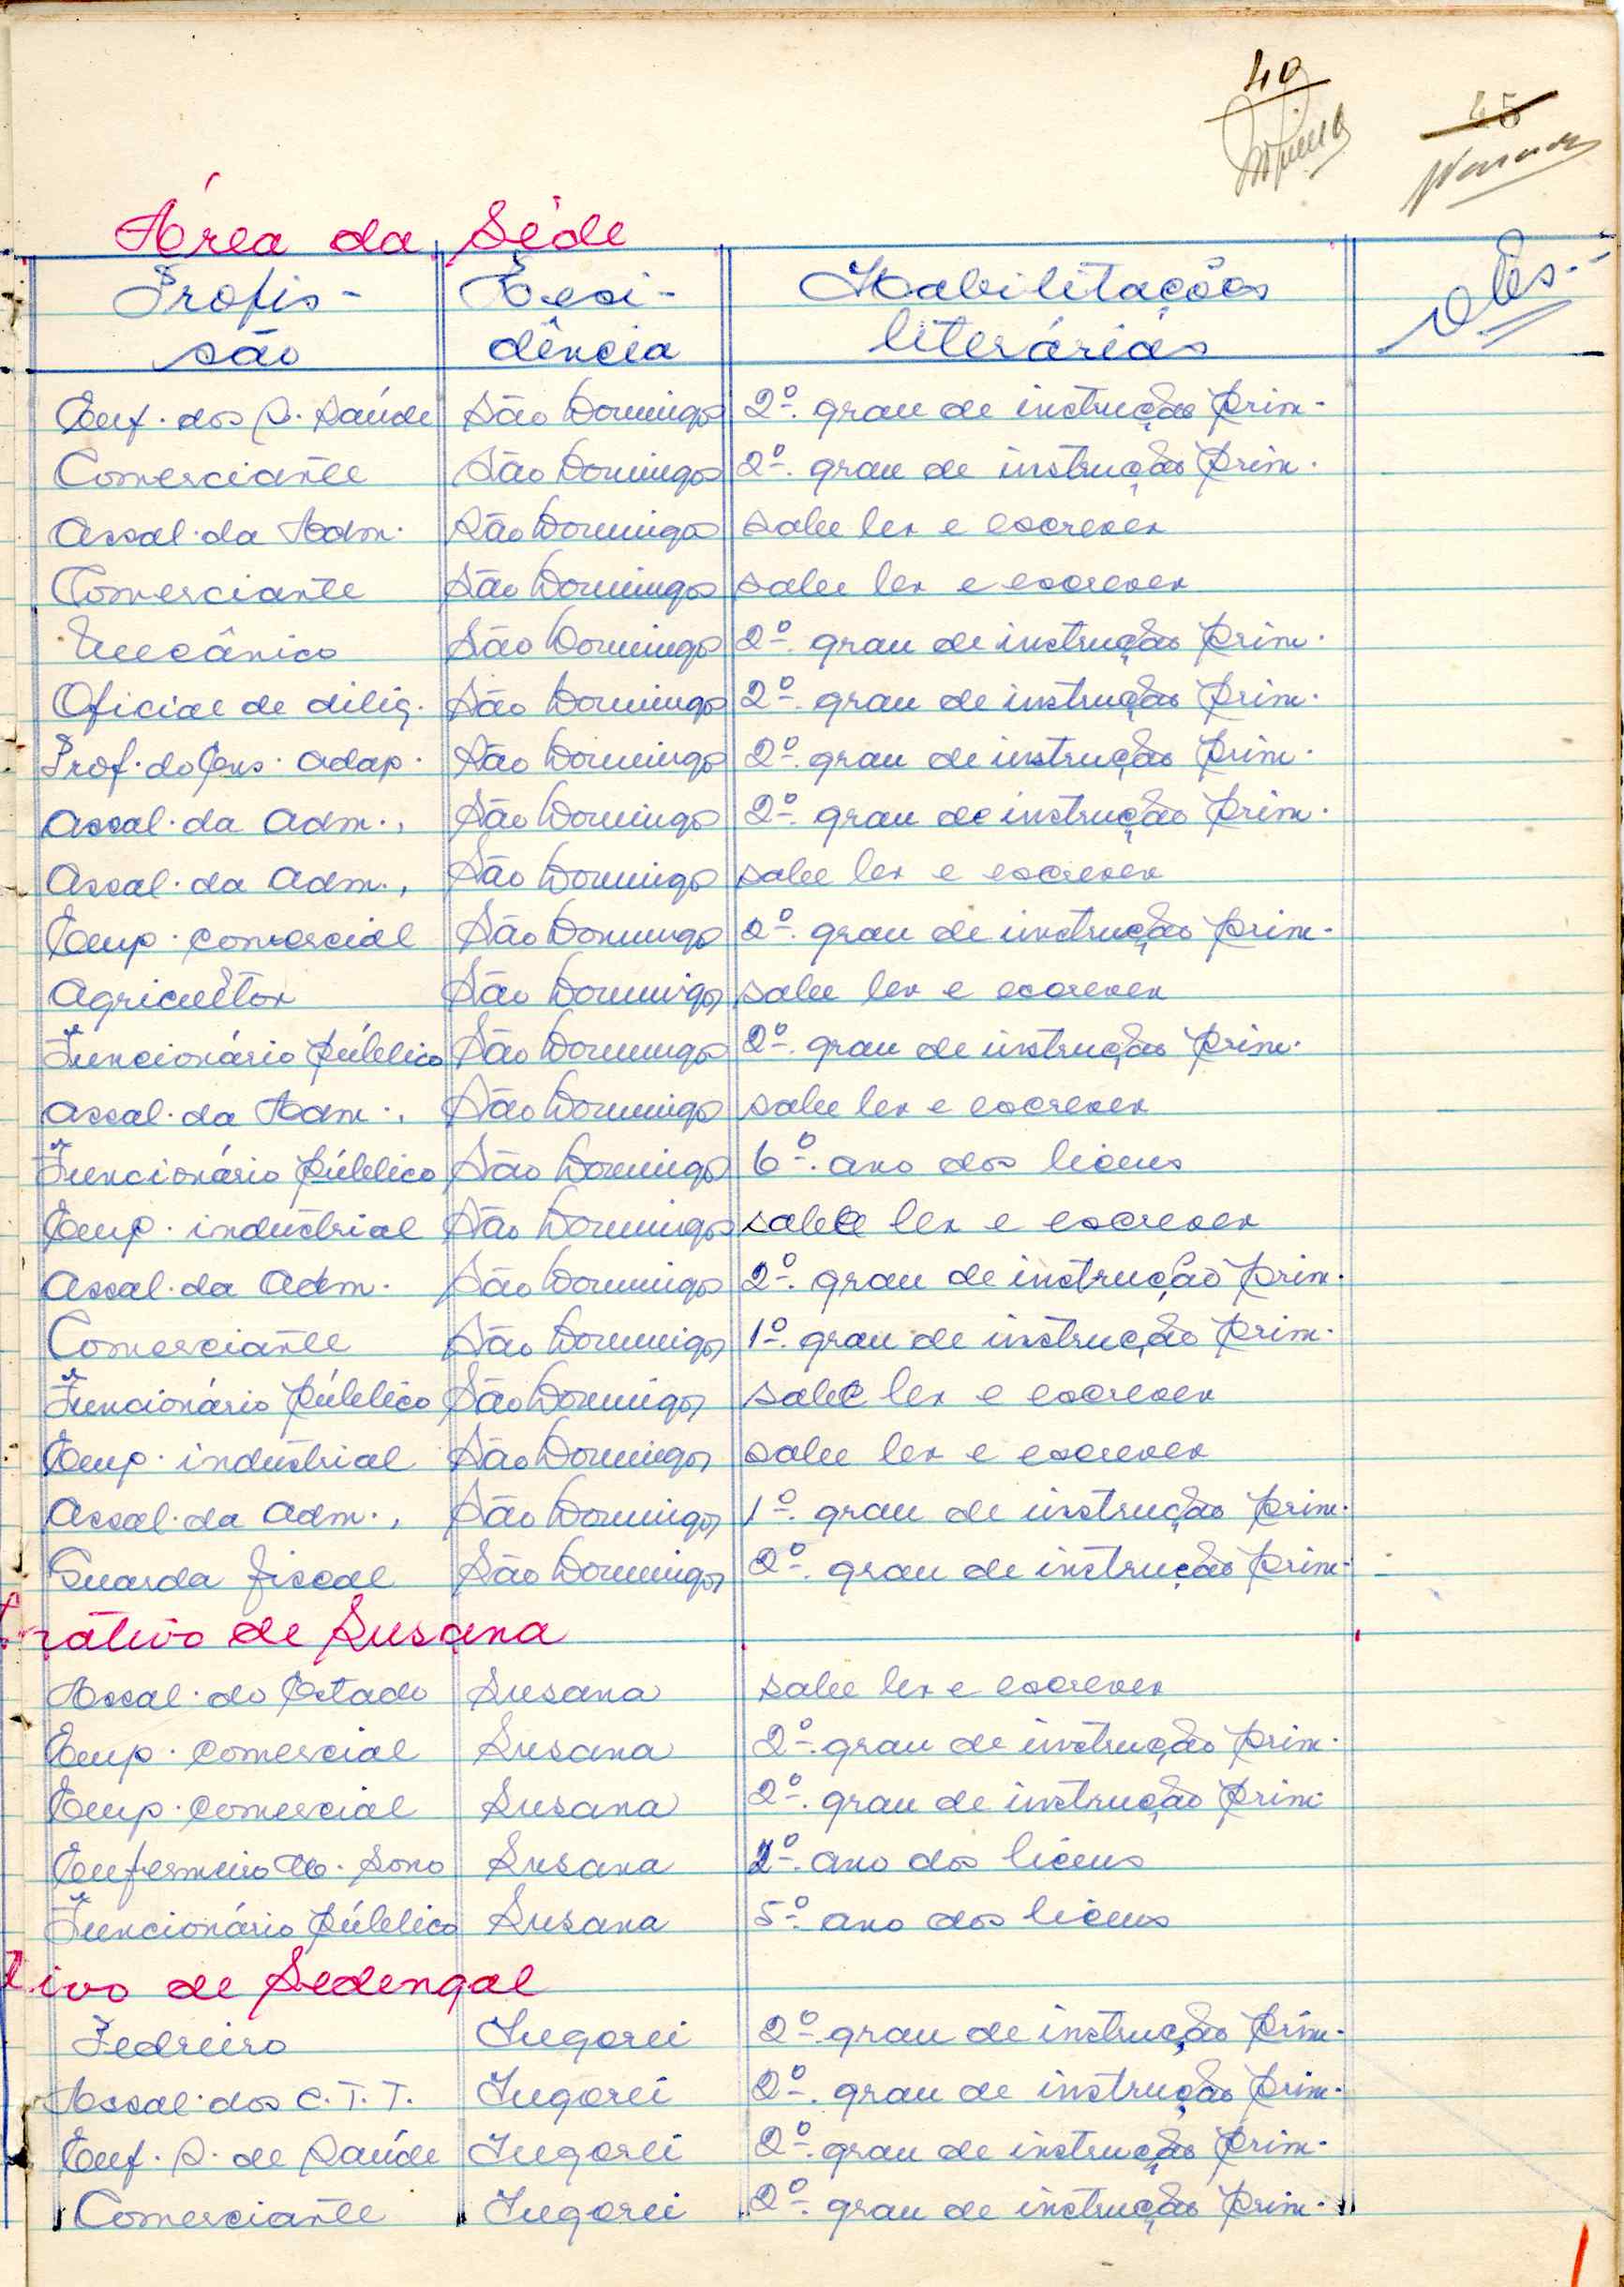 40
45
Área da Séde
Profis- Resi- Habilitações Obs.
são dência literárias
Enf. dos S. Saúde São Domingos 2º. grau de instrução prim.
Comerciante São Domingos 2º. grau de instrução prim.
Assal. da Adm. São Domingos sabe ler e escrever
Comerciante São Domingos sabe ler e escrever
Mecânico São Domingos 2º. grau de instrução prim.
Oficial de dilig. São Domingos 2º. grau de instrução prim.
Prof. do Ens. Adap. São Domingos 2º. grau de instrução prim.
Assal. da Adm., São Domingos 2º. grau de instrução prim.
Assal. da Adm., São Domingos sabe ler e escrever
Emp. comercial São Domingos 2º. grau de instrução prim.
Agricultor São Domingos sabe ler e escrever
Funcionário público São Domingos 2º. grau de instrução prim.
Assal. da Adm., São Domingos sabe ler e escrever
Funcionário público São Domingos 6º. ano dos liceus
Emp. industrial São Domingos sabe ler e escrever
Assal. da Adm. São Domingos 2º. grau de instrução prim.
Comerciante São Domingos 1º. grau de instrução prim.
Funcionário público São Domingos sabe ler e escrever
Emp. industrial São Domingos sabe ler e escrever
Assal. da Adm., São Domingos 1º. grau de instrução prim.
Guarda fiscal São Domingos 2º. grau de instrução prim.
rativo de Susana
Assal. do Estado Susana sabe ler e escrever
Emp. comercial Susana 2º. grau de instrução prim.
Emp. comercial Susana 2º. grau de instrução prim.
Enfermeiro M. Sono Susana º. ano dos liceus
Funcionário público Susana 5º. ano dos liceus
tivo de Sedengal
Pedreiro Ingorei 2º. grau de instrução prim.
Assal. dos C.T.T. Ingorei 2º. grau de instrução prim.
Enf. S. de Saúde Ingorei 2º. grau de instrução prim.
Comerciante Ingorei 2º. grau de instrução prim.